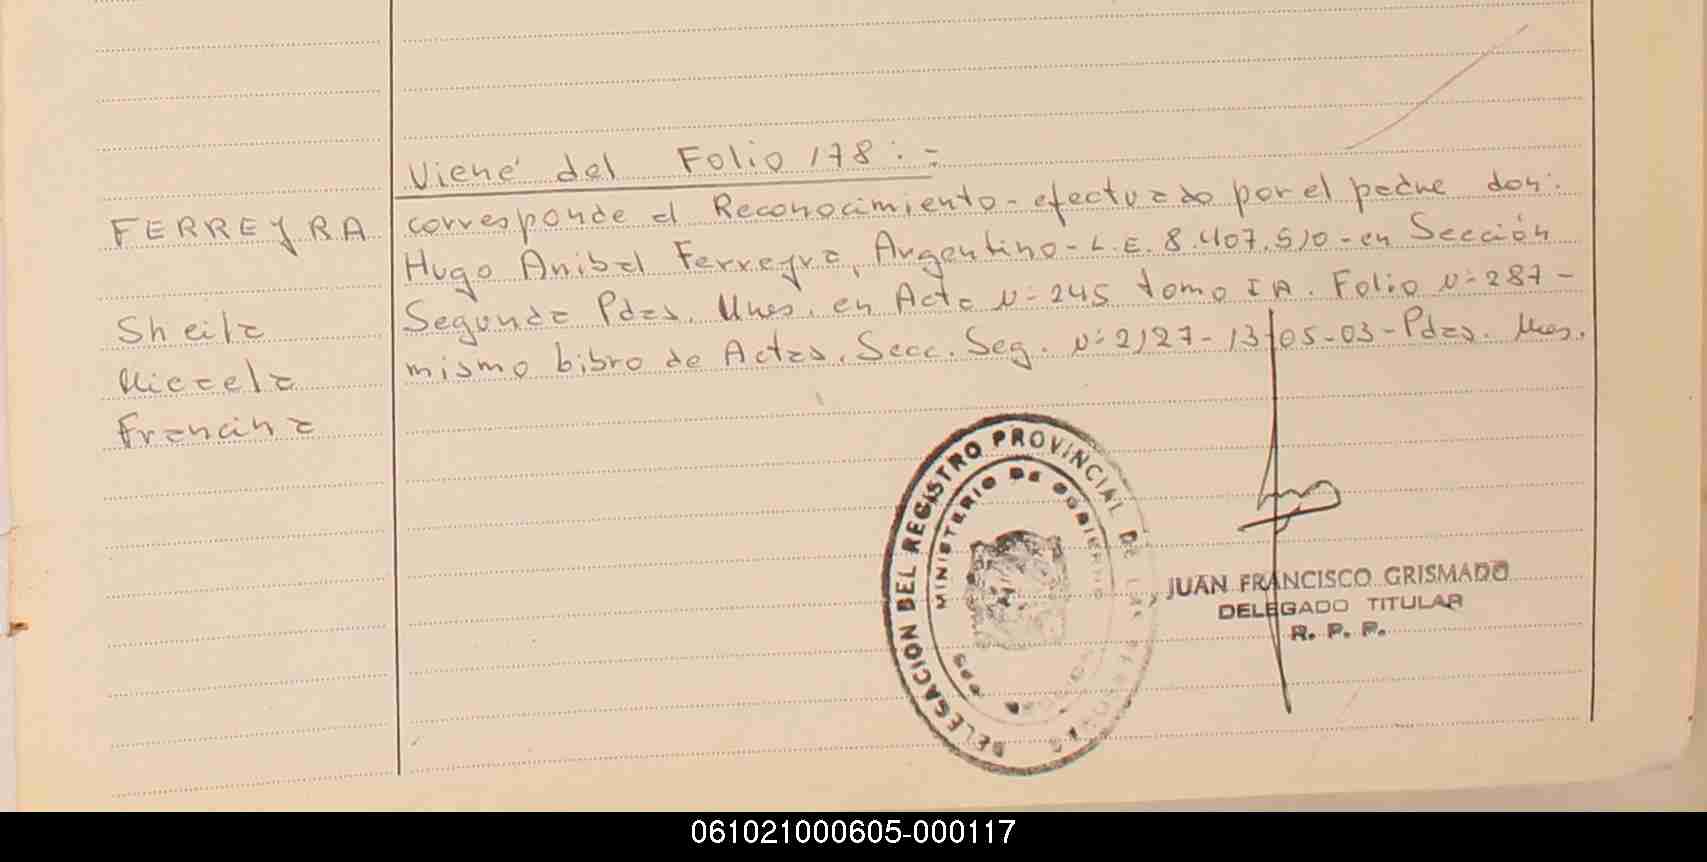 Viene del Folio 178:-
FERREYRA
Sheila
Micaela
Francina
corresponde al Reconocimiento-efectuado por el padre don:
Hugo Anibal Ferreyra, Argentino-L.E. 8.407.510-en Sección
Segunda Pdas. Mnes. en Acta Nº 245 tomo I A. Folio Nº 287-
mismo bibro de Actas. Secc. Seg. Nº 2127-13/05-03-Pdas. Mnes.
DELEGACION DEL REGISTRO PROVINCIAL DE LAS PERSONAS
MINISTERIO DE GOBIERNO
JUAN FRANCISCO GRISMADO
DELEGADO TITULAR
R. P. P.
061021000605-000117